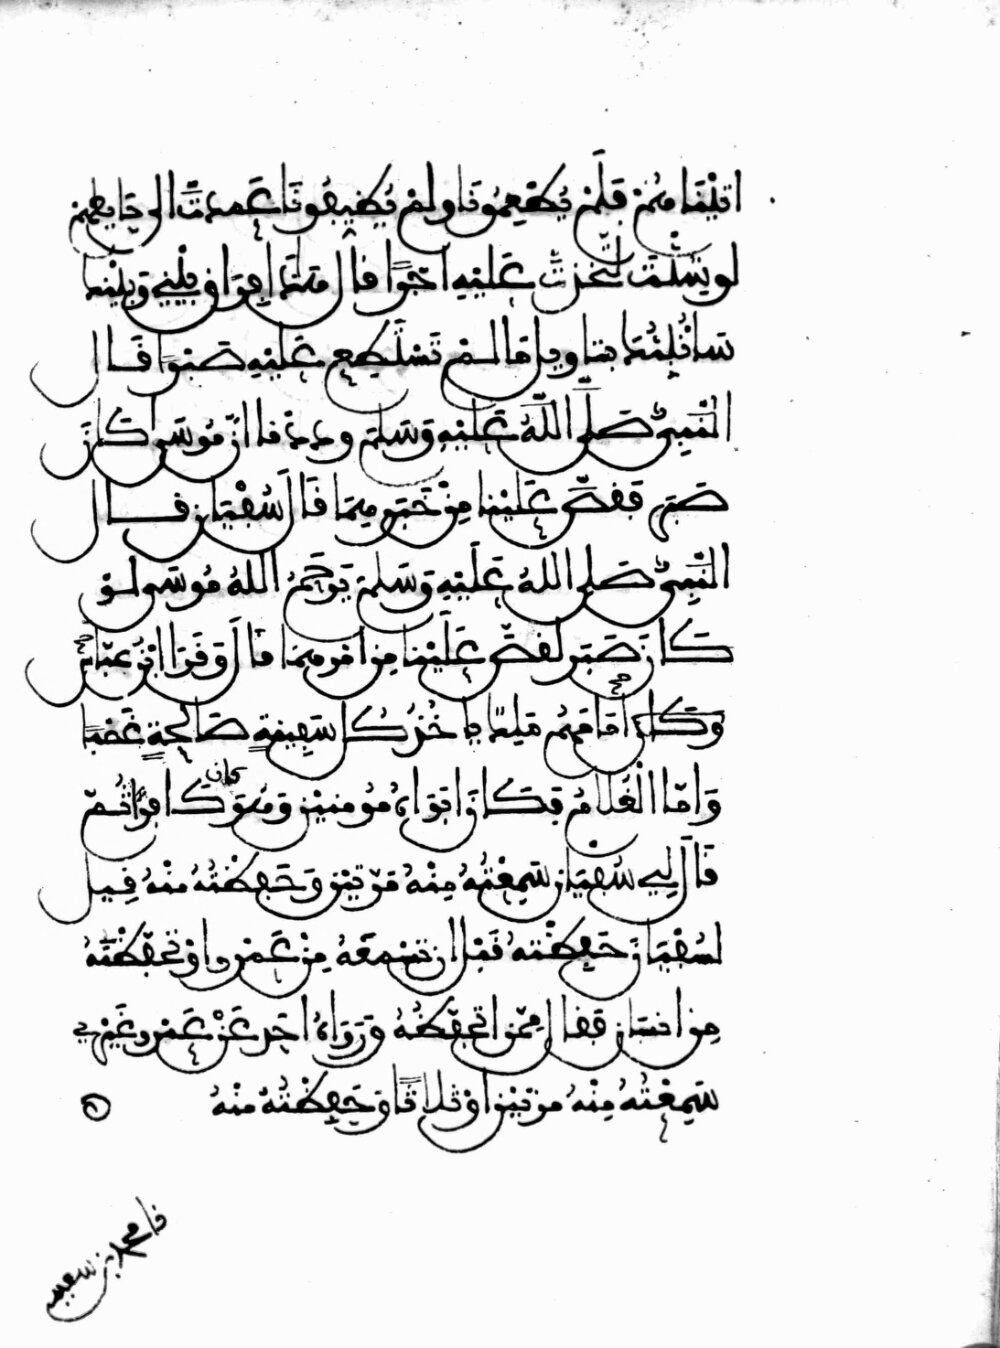 اتيناهم فلم يطعمونا ولم يضيفونا عمدت الى حايطهم
لو شئت لتخذت عليه اجرا قال هذا فراق بيني وبينك
سانبئك بتاويل ما لم تستطع عليه صبرا قال
النبي صلى الله عليه وسلم وددنا ان موسى كان
صبر فقص علينا من خبرهما قال سفيان قال
النبي صلى الله عليه وسلم يرحم الله موسى لو
كان صبر لقص علينا من امرهما قال وقرا ابن عباس
وكان امامهم ملك ياخذ كل سفينة صالحة غصبا
واما الغلام فكان ابواه مومنين وهو كان كافرا ثم
قال لي سفيان سمعته منه مرتين وحفظته منه قيل
لسفيان حفظته قبل ان تسمعه من عمرو او تحفظته
من انسان فقال ممن اتحفظه ورواه احد عن عمرو غيري
سمعته منه مرتين او ثلاثا وحفظته منه
محمد بن سعيد